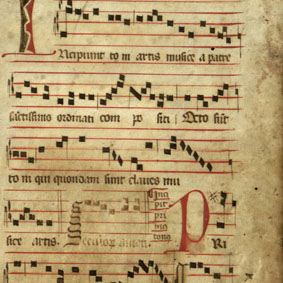 Incipiunt toni artis musice a patre
sanctissimo ordinati com po siti Octo sunt
toni qui quondam sunt claves mu
sice artis
Inci
pit
pri
mus
tonus
Pri